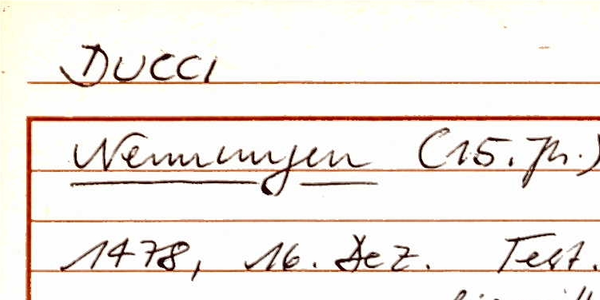 DUCCI
Nennungen (15. Jh.)
1478, 16. Dez. Test.